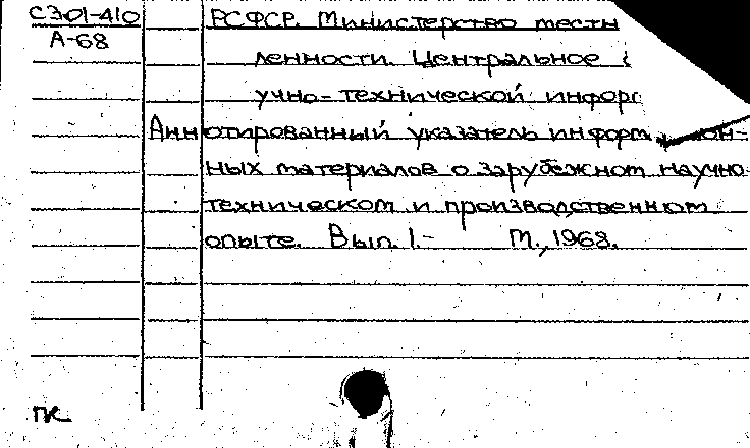 С301-410 РСФСР. Министерство местн
А-68
ленности. Центральное
учно-технической инфор
Аннотированный указатель информ цион-
ных материалов о зарубежном научно-
техническом и производственном
опыте. Вып. 1- М., 1968.
ПК